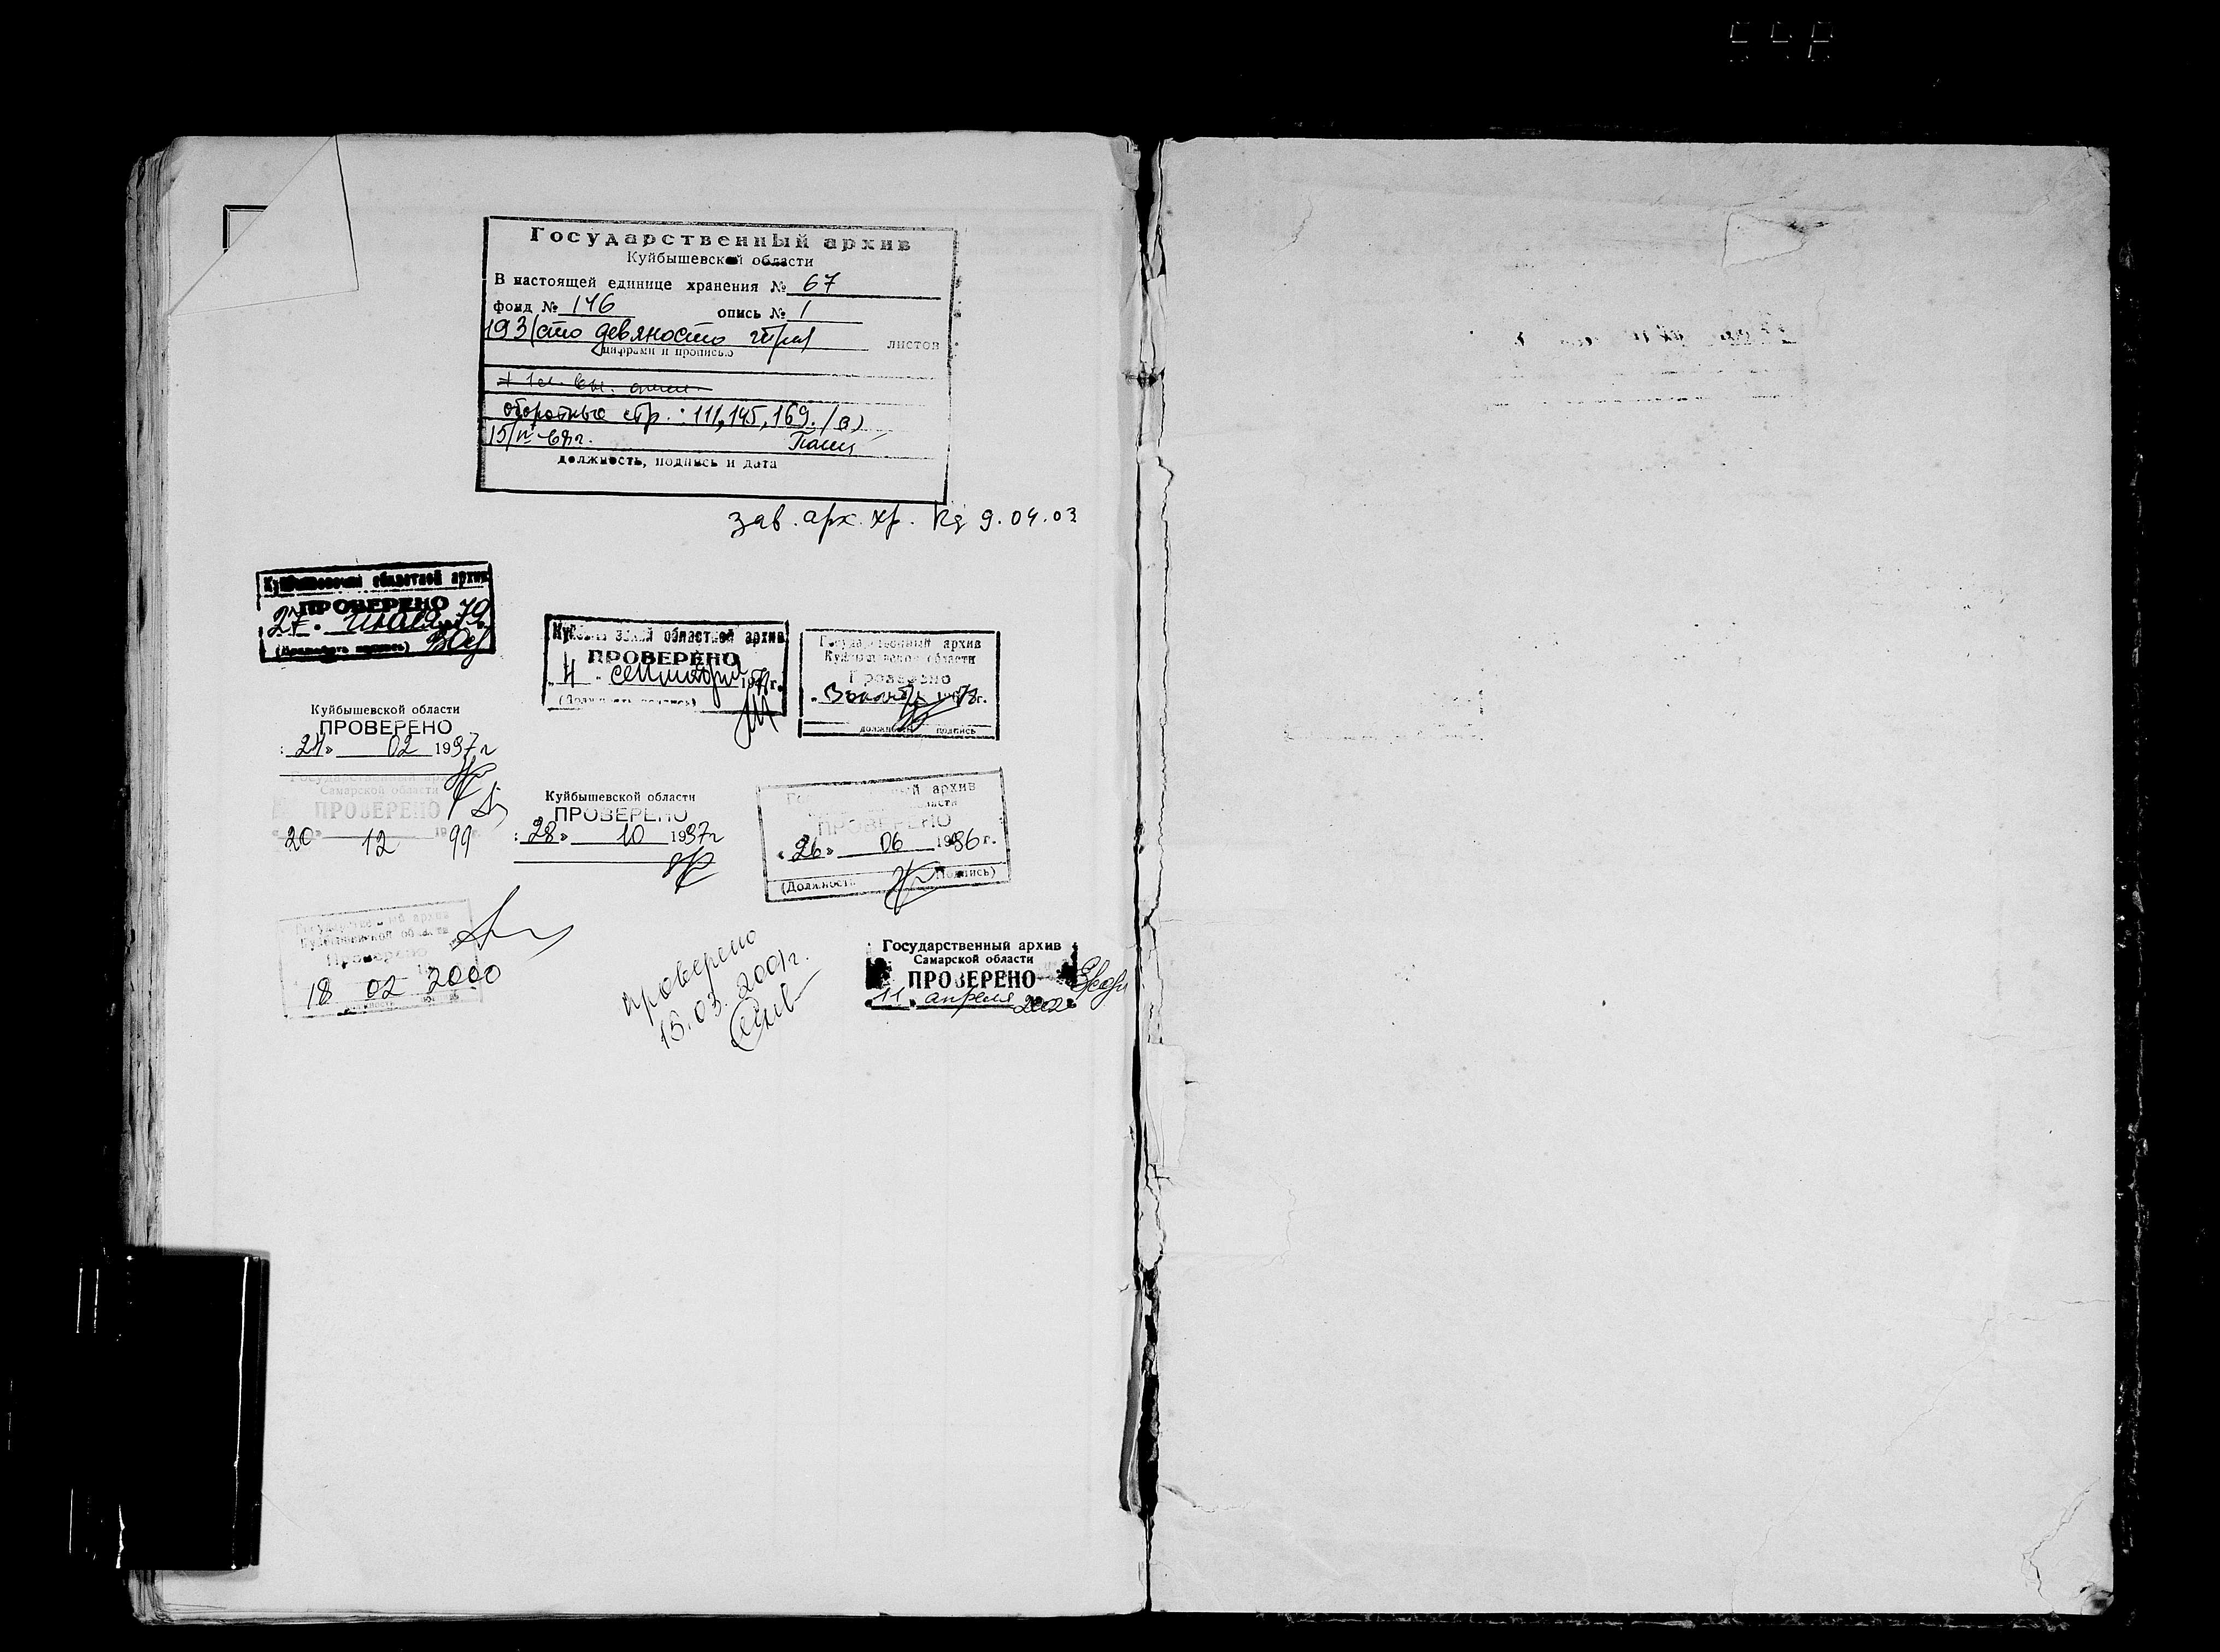 Государственный архив
Куйбышевской области
В настоящей единице хранения № 67
фонд № 146 опись № 1
193 (сто девяносто три) листов
цифрами и прописью
оборотные стр.: 111, 145, 169. (3)
15/IV-68г.
должность, подпись и дата
зав. арх. хр. 9.04.03
Куйбышевский областной архив
ПРОВЕРЕНО
27. июля 70 г.
(Должность подпись)
Куйбышевский областной архив
ПРОВЕРЕНО
"4" сентября 197 г.
(Должность подпись)
Государственный архив
Куйбышевской области
Проверено
г.
должность подпись
Куйбышевской области
ПРОВЕРЕНО
02 1997г
Государственный архив
Самарской области
ПРОВЕРЕНО
20 12 1999 г.
Куйбышевской области
ПРОВЕРЕНО
28» 10 1997г
Государственный архив
области
ПРОВЕРЕНО
«26» 06 1996 г.
(Должность Подпись)
Государственный архив
Куйбышевской области
Проверено
18 02 2000
должность подпись
проверено
15.03.2001г.
Государственный архив
Самарской области
ПРОВЕРЕНО
11 апреля 2002